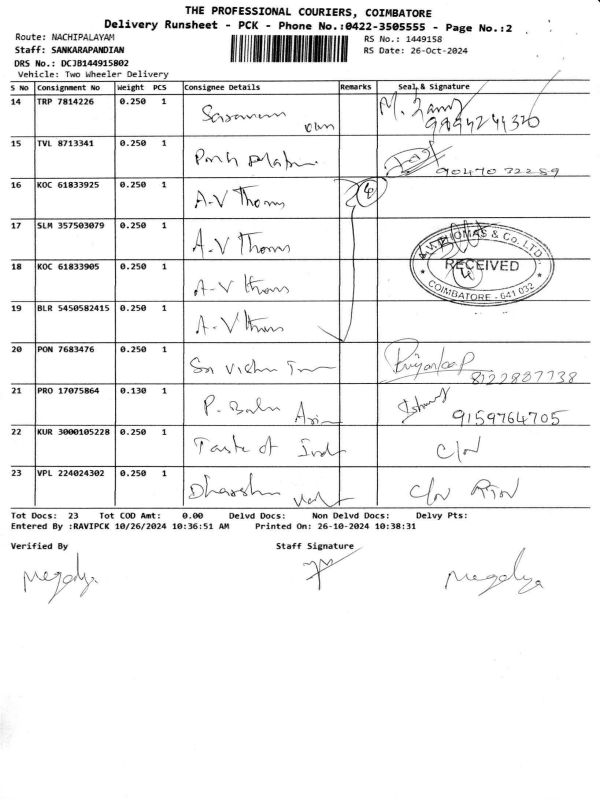 THE PROFESSIONAL COURIERS, COIMBATORE
Delivery Runsheet - PCK - Phone No.:0422-3505555 - Page No.:2
Route: NACHIPALAYAM RS No.: 1449158
Staff: SANKARAPANDIAN RS Date: 26-Oct-2024
DRS No.: DCJB144915802
Vehicle: Two Wheeler Delivery
S No Consignment No Weight PCS Consignee Details Remarks Seal & Signature
14 TRP 7814226 0.250 1
15 TVL 8713341 0.250 1 9047032289
16 KOC 61833925 0.250 1 A-V Thomas 4
17 SLM 357503079 0.250 1 A-V Thomas
A.V. THOMAS & Co. LTD.,
RECEIVED
COIMBATORE - 641 032
18 KOC 61833905 0.250 1 A-V Thomas
19 BLR 5450582415 0.250 1 A-V Thomas
20 PON 7683476 0.250 1 8122887738
21 PRO 17075864 0.130 1 P. Balu 9159764705
22 KUR 3000105228 0.250 1 Taste of Ind C/N
23 VPL 224024302 0.250 1 C/N
Tot Docs: 23 Tot COD Amt: 0.00 Delvd Docs: Non Delvd Docs: Delvy Pts:
Entered By :RAVIPCK 10/26/2024 10:36:51 AM Printed On: 26-10-2024 10:38:31
Verified By Staff Signature